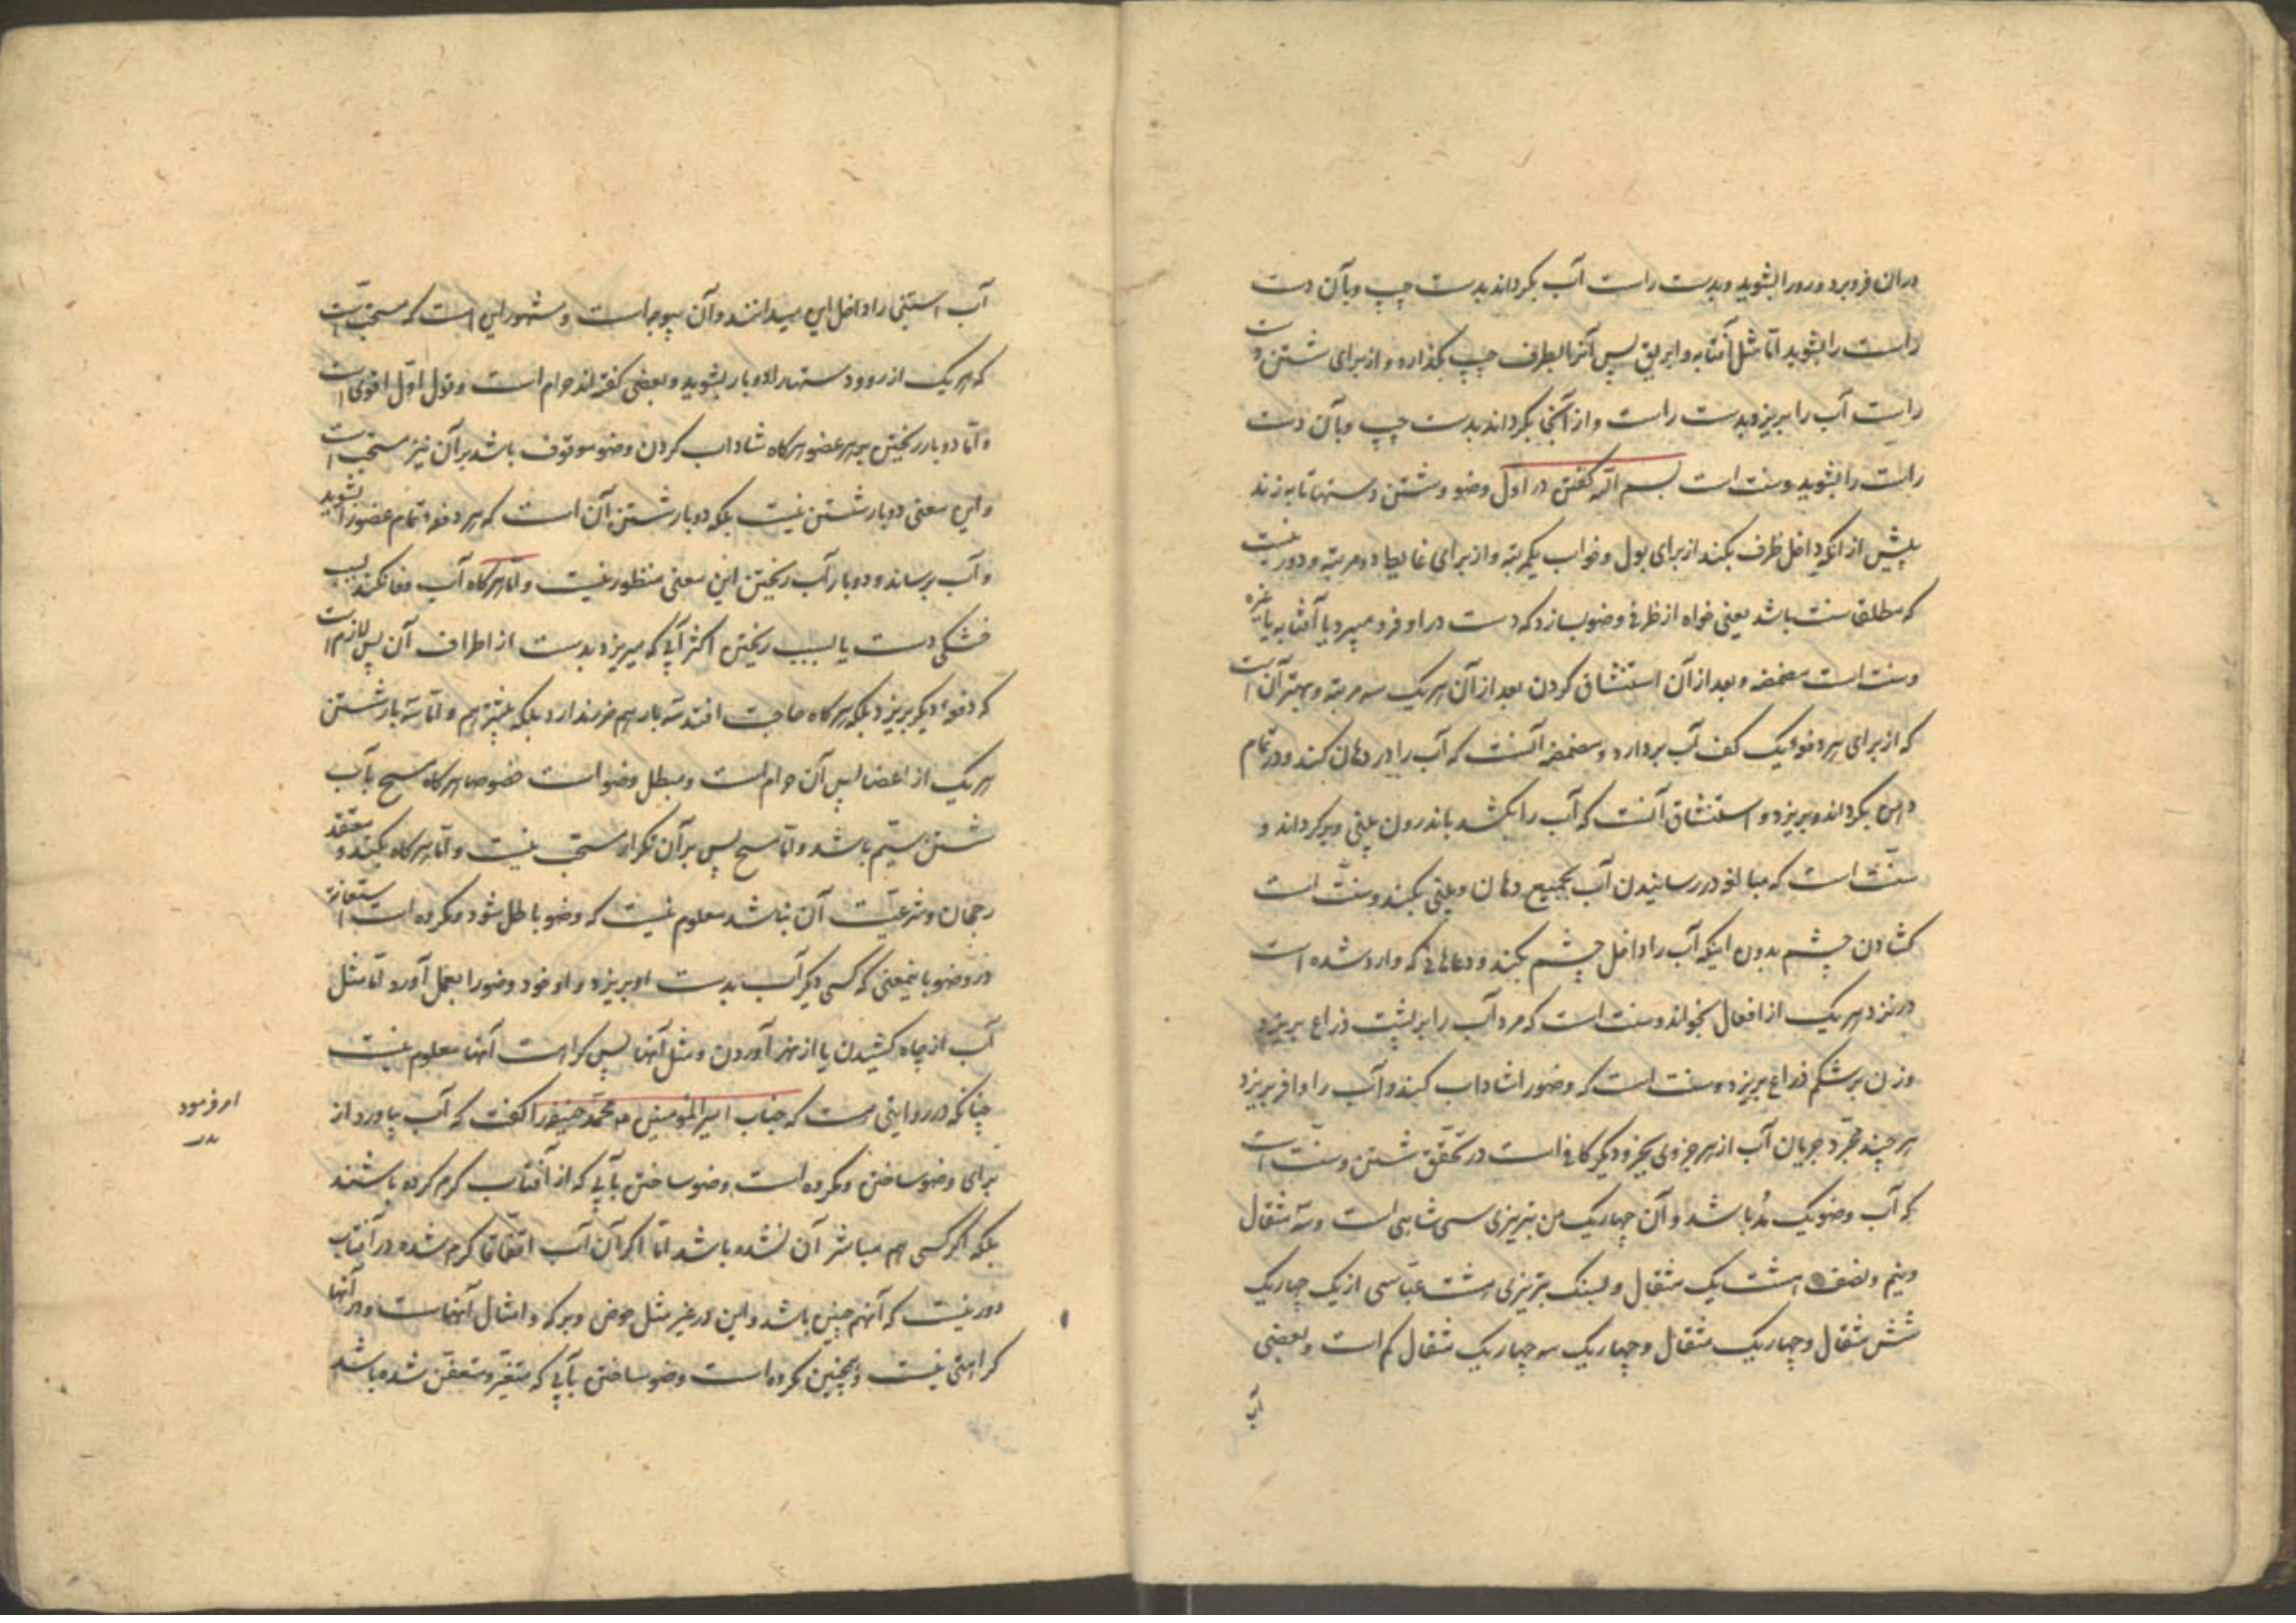 در ان فرو برد و رو را بشوید و بدست راست آب بگرداند بدست چپ و بآن دست
راست را بشوید امّا مثل آفتابه و ابریق پس آنرا بطرف چپ بگذارد و از برای شستن دست
راست آب را بریزد بدست راست و از آنجا بگرداند بدست چپ و بآن دست
راست را بشوید و سنت است بسم اللّه گفتن در اول وضو و شستن دستها تا به زند
پیش از انکه داخل ظرف بکند از برای بول و خواب یکمرتبه و از برای غایط دو مرتبه و دور نیست
که مطلقا سنت باشد یعنی خواه از ظرفی وضو بسازد که دست در او فرو میبرد یا آفتابه یا غیره
و سنت است مضمضه و بعد از آن استنشاق کردن بعد از آن هر یک سه مرتبه و بهتر آن است
که از برای هر دفعه یک کف آب بردارد و مضمضه آنست که آب را در دهان کند و در تمام
دهن بگرداند و بریزد و استنشاق آنست که آب را بکشد باندرون بینی و برگرداند و
سنّت است که مبالغه در رسانیدن آب بجمیع دهان و بینی بکند و سنّت است
گشادن چشم بدون اینکه آب را داخل چشم بکند و دعاهائی که وارد شده است
در نزد هر یک از افعال بخواند و سنت است که مرد آب را بر پشت ذراع بریزد
و زن بر شکم ذراع بریزد و سنت است که وضو را شاداب کند و آب را وافر بریزد
هر چند مجرّد جریان آب از هر جزوی بجزو دیگر کافی است در تحقّق شستن و سنّت است
که آب وضو یک مُد باشد و آن چهار یک من تبریزی سی شاهی است و سه مثقال
و نیم و نصف هشت یک مثقال و بسنک تبریزی هشت عبّاسی از یک چهار یک
شش مثقال و چهار یک مثقال و چهار یک سه چهار یک مثقال کم است و بعضی
آب
آب استنجی را داخل این میدانند و آن بیوجه است و مشهور این است که مستحب است
که هر یک از رو و دستها را دو بار بشوید و بعضی گفته اند حرام است و قول اوّل اقوی است
و امّا دو بار ریختن بهر عضو هرگاه شاداب کردن وضو موقوف باشد بر آن نیز مستحب است
و این معنی دو بار شستن نیست بلکه دو بار شستن آن است که هر دفعه تمام عضو را بشوید
و آب برساند و دو بار آب ریختن این معنی منظور نیست و امّا هرگاه آب وفا نکند بسبب
خشکی دست یا بسبب ریختن اکثر آبی که میریزد بدست از اطراف آن پس لازم است
که دفعه دیگر بریزد بلکه هرگاه حاجت افتد سه بار هم ضرر ندارد بلکه بیشتر هم و امّا سه بار شستن
هر یک از اعضا پس آن حرام است و مبطل وضو است خصوصا هرگاه مسح بآب
شستن سیّم باشد و امّا مسح پس بر آن تکرار مستحب نیست و امّا هرگاه بکند و معتقد
رجحان و شرعیّت آن نباشد معلوم نیست که وضو باطل شود و مکروه است استعانة
در وضو باینمعنی که کسی دیگر آب بدست او بریزد و او خود وضو را بعمل آورد امّا مثل
آب از چاه کشیدن یا از نهر آوردن و مثل آنها پس کراهت آنها معلوم نیست
چنانکه در روایتی هست که جناب امیرالمؤمنین محمّد حنیفه را گفت که آب بیاورد از
امر فرمود
برای وضو ساختن و مکروه است وضو ساختن بآبی که از آفتاب گرم کرده باشند
بلکه اگر کسی هم مباشر آن نشده باشد امّا اگر آن آب اتّفاقا گرم شده در آفتاب
دور نیست که آنهم چنین باشد و این در غیر مثل حوض و برکه و امثال آنهاست و در آنها
کراهتی نیست و همچنین مکروه است وضو ساختن بآبی که متغیّر و متعفّن شده باشد